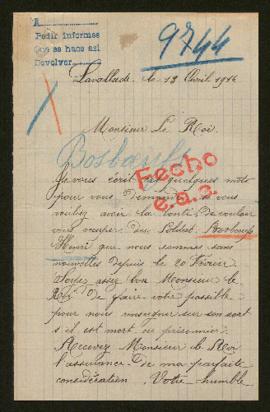 A
Pedir informes
Que se hace así
Devolver
9744
Lavallade, le 13 Avril 1916
Monsieur le Roi.
Fecho
Je vous écrit ces quelques mots
pour vous demander si vous
voulez avoir la bonté de vouloir
vous occuper du Soldat
Henri que nous sommes sans
nouvelles depuis le 20 Février
Soyez assez bon Monsieur le
Roi de faire votre possible
pour nous renseigner sur son sort
s'il est mort ou prisonnier.
Recevez Monsieur le Roi
l'assurance de ma parfaite
considération. Votre humble